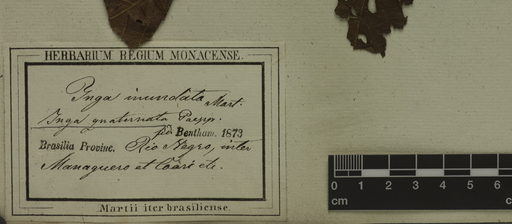 HERBARIUM REGIUM MONACENSE.
Inga inundata Mart.
Inga quaternata Poepp.
Bentham. 1873
Brasilia Provinc. Rio Negro, inter
Managuero et Coari etc.
Martii iter brasiliense.
0 1 2 3 4 5 6
cm cm